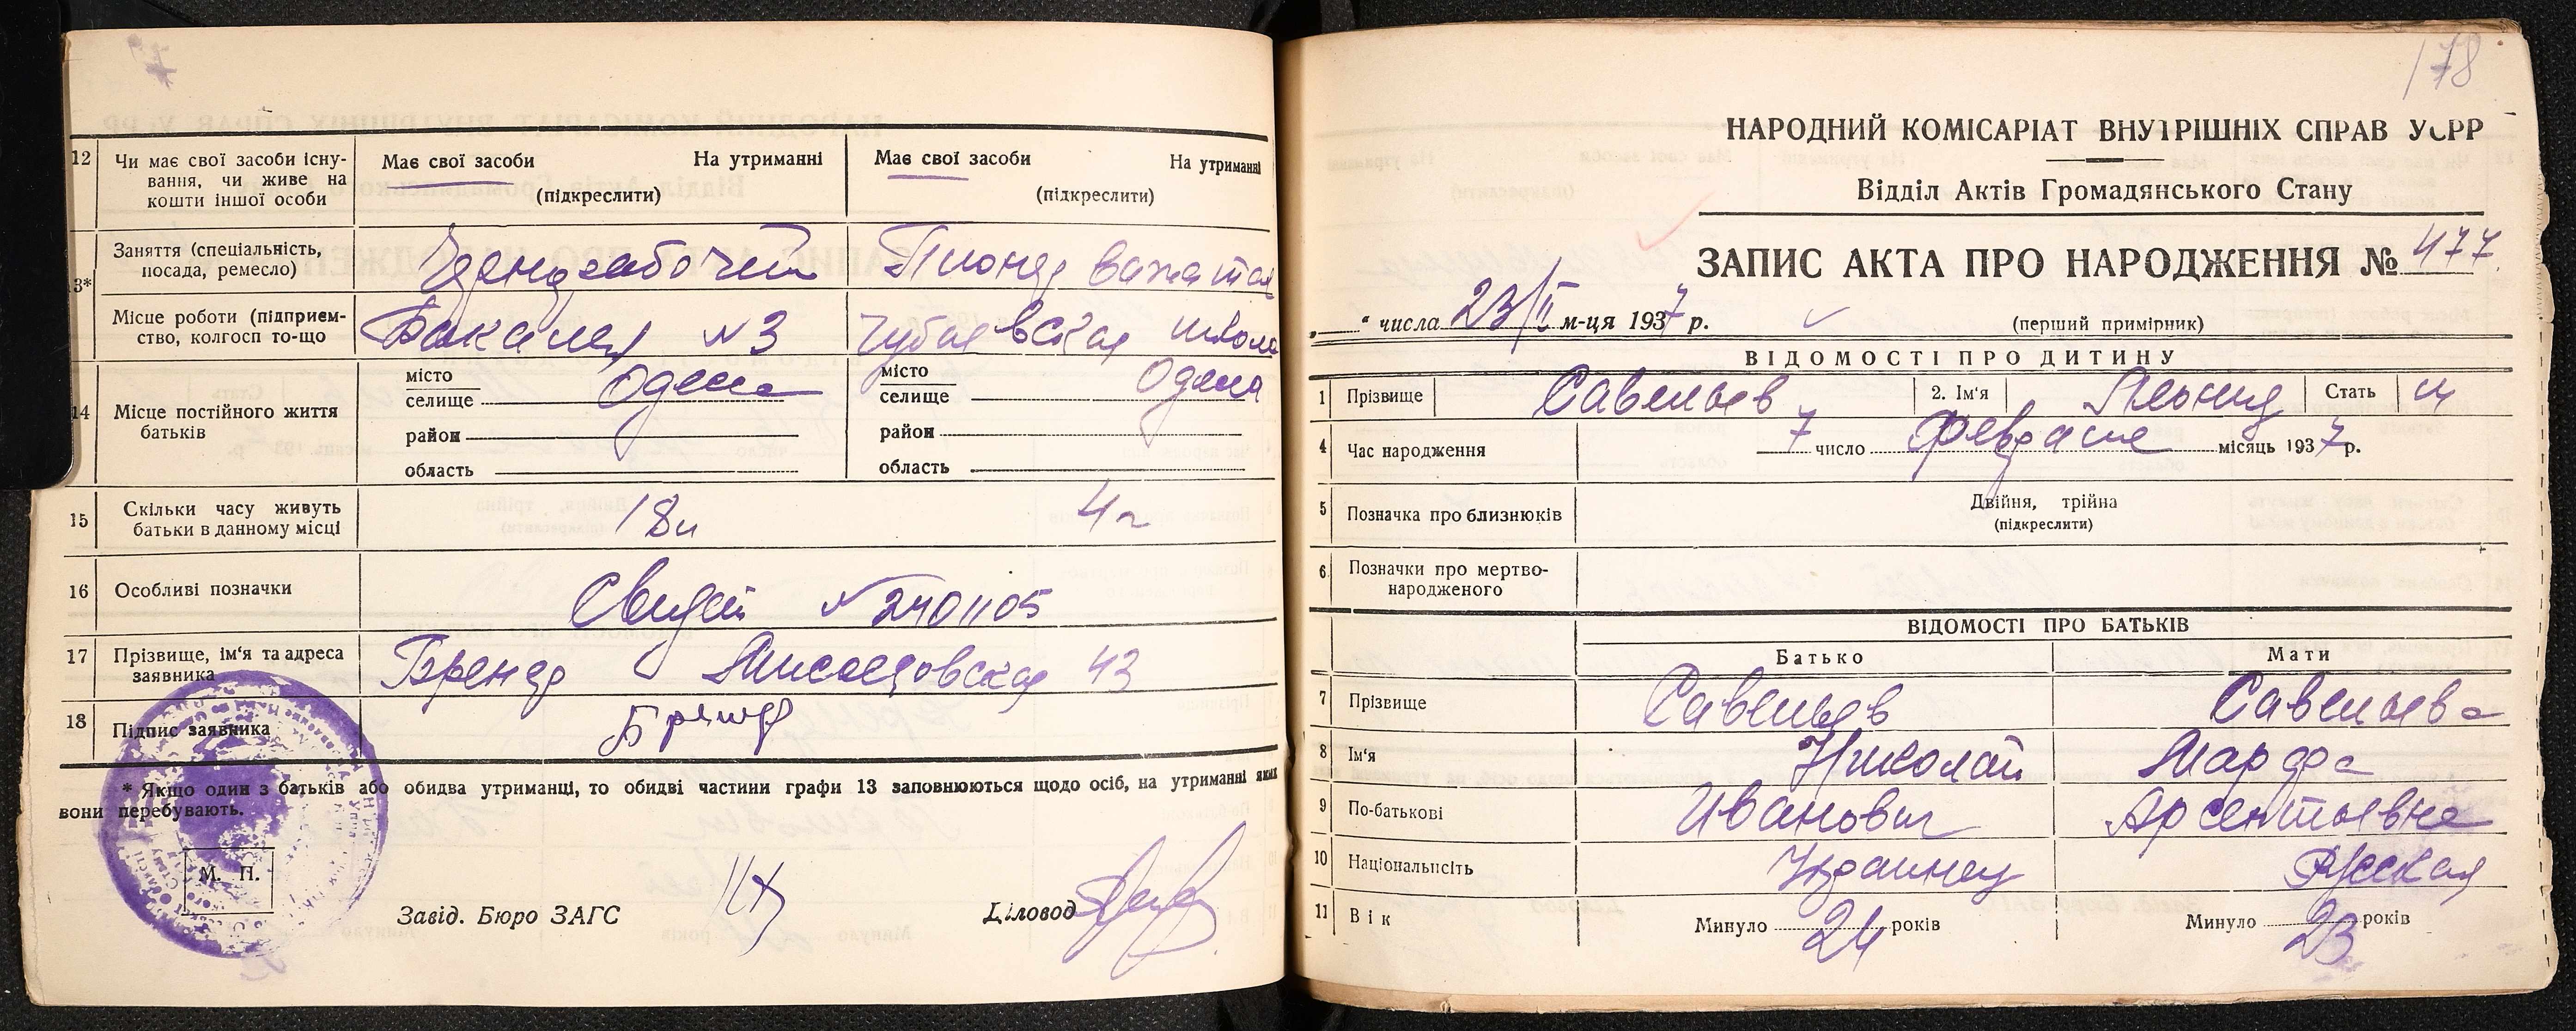 12 Чи має свої засоби існування, чи живе на кошти іншої особи
Має свої засоби На утриманні
(підкреслити)
Має свої засоби На утриманні
(підкреслити)
13* Заняття (спеціальність, посада, ремесло)
Чернорабочий
Пионер вожатая
Місце роботи (підприємство, колгосп то-що
Бакалея №3
школа
14 Місце постійного життя батьків
місто
селище Одесса
район
область
місто
селище Одесса
район
область
15 Скільки часу живуть батьки в данному місці
18л
4г
16 Особливі позначки
Свидет №2401105
17 Прізвище, ім'я та адреса заявника
Бренер 43
18 Підпис заявника
* Якщо один з батьків або обидва утриманці, то обидві частини графи 13 заповнюються щодо осіб, на утриманні яких
вони перебувають.
М. П.
Завід. Бюро ЗАГС
Діловод
178
НАРОДНИЙ КОМІСАРІАТ ВНУТРІШНІХ СПРАВ УСРР
Відділ Актів Громадянського Стану
ЗАПИС АКТА ПРО НАРОДЖЕННЯ № 477
„ “ числа 23/II м-ця 1937 р.
(перший примірник)
ВІДОМОСТІ ПРО ДИТИНУ
1 Прізвище Савельев 2. Ім'я Леонид Стать м
4 Час народження 7 число Февраля місяць 1937р.
5 Позначка про близнюків Двійня, трійня
(підкреслити)
6 Позначки про мертвонародженого
ВІДОМОСТІ ПРО БАТЬКІВ
Батько Мати
7 Прізвище Савельев Савельева
8 Ім'я Николай Марфа
9 По-батькові Иванович Арсентьевна
10 Національність Украинец Русская
11 Вік Минуло 24 років Минуло 23 років